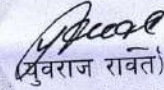 (युवराज रावत)